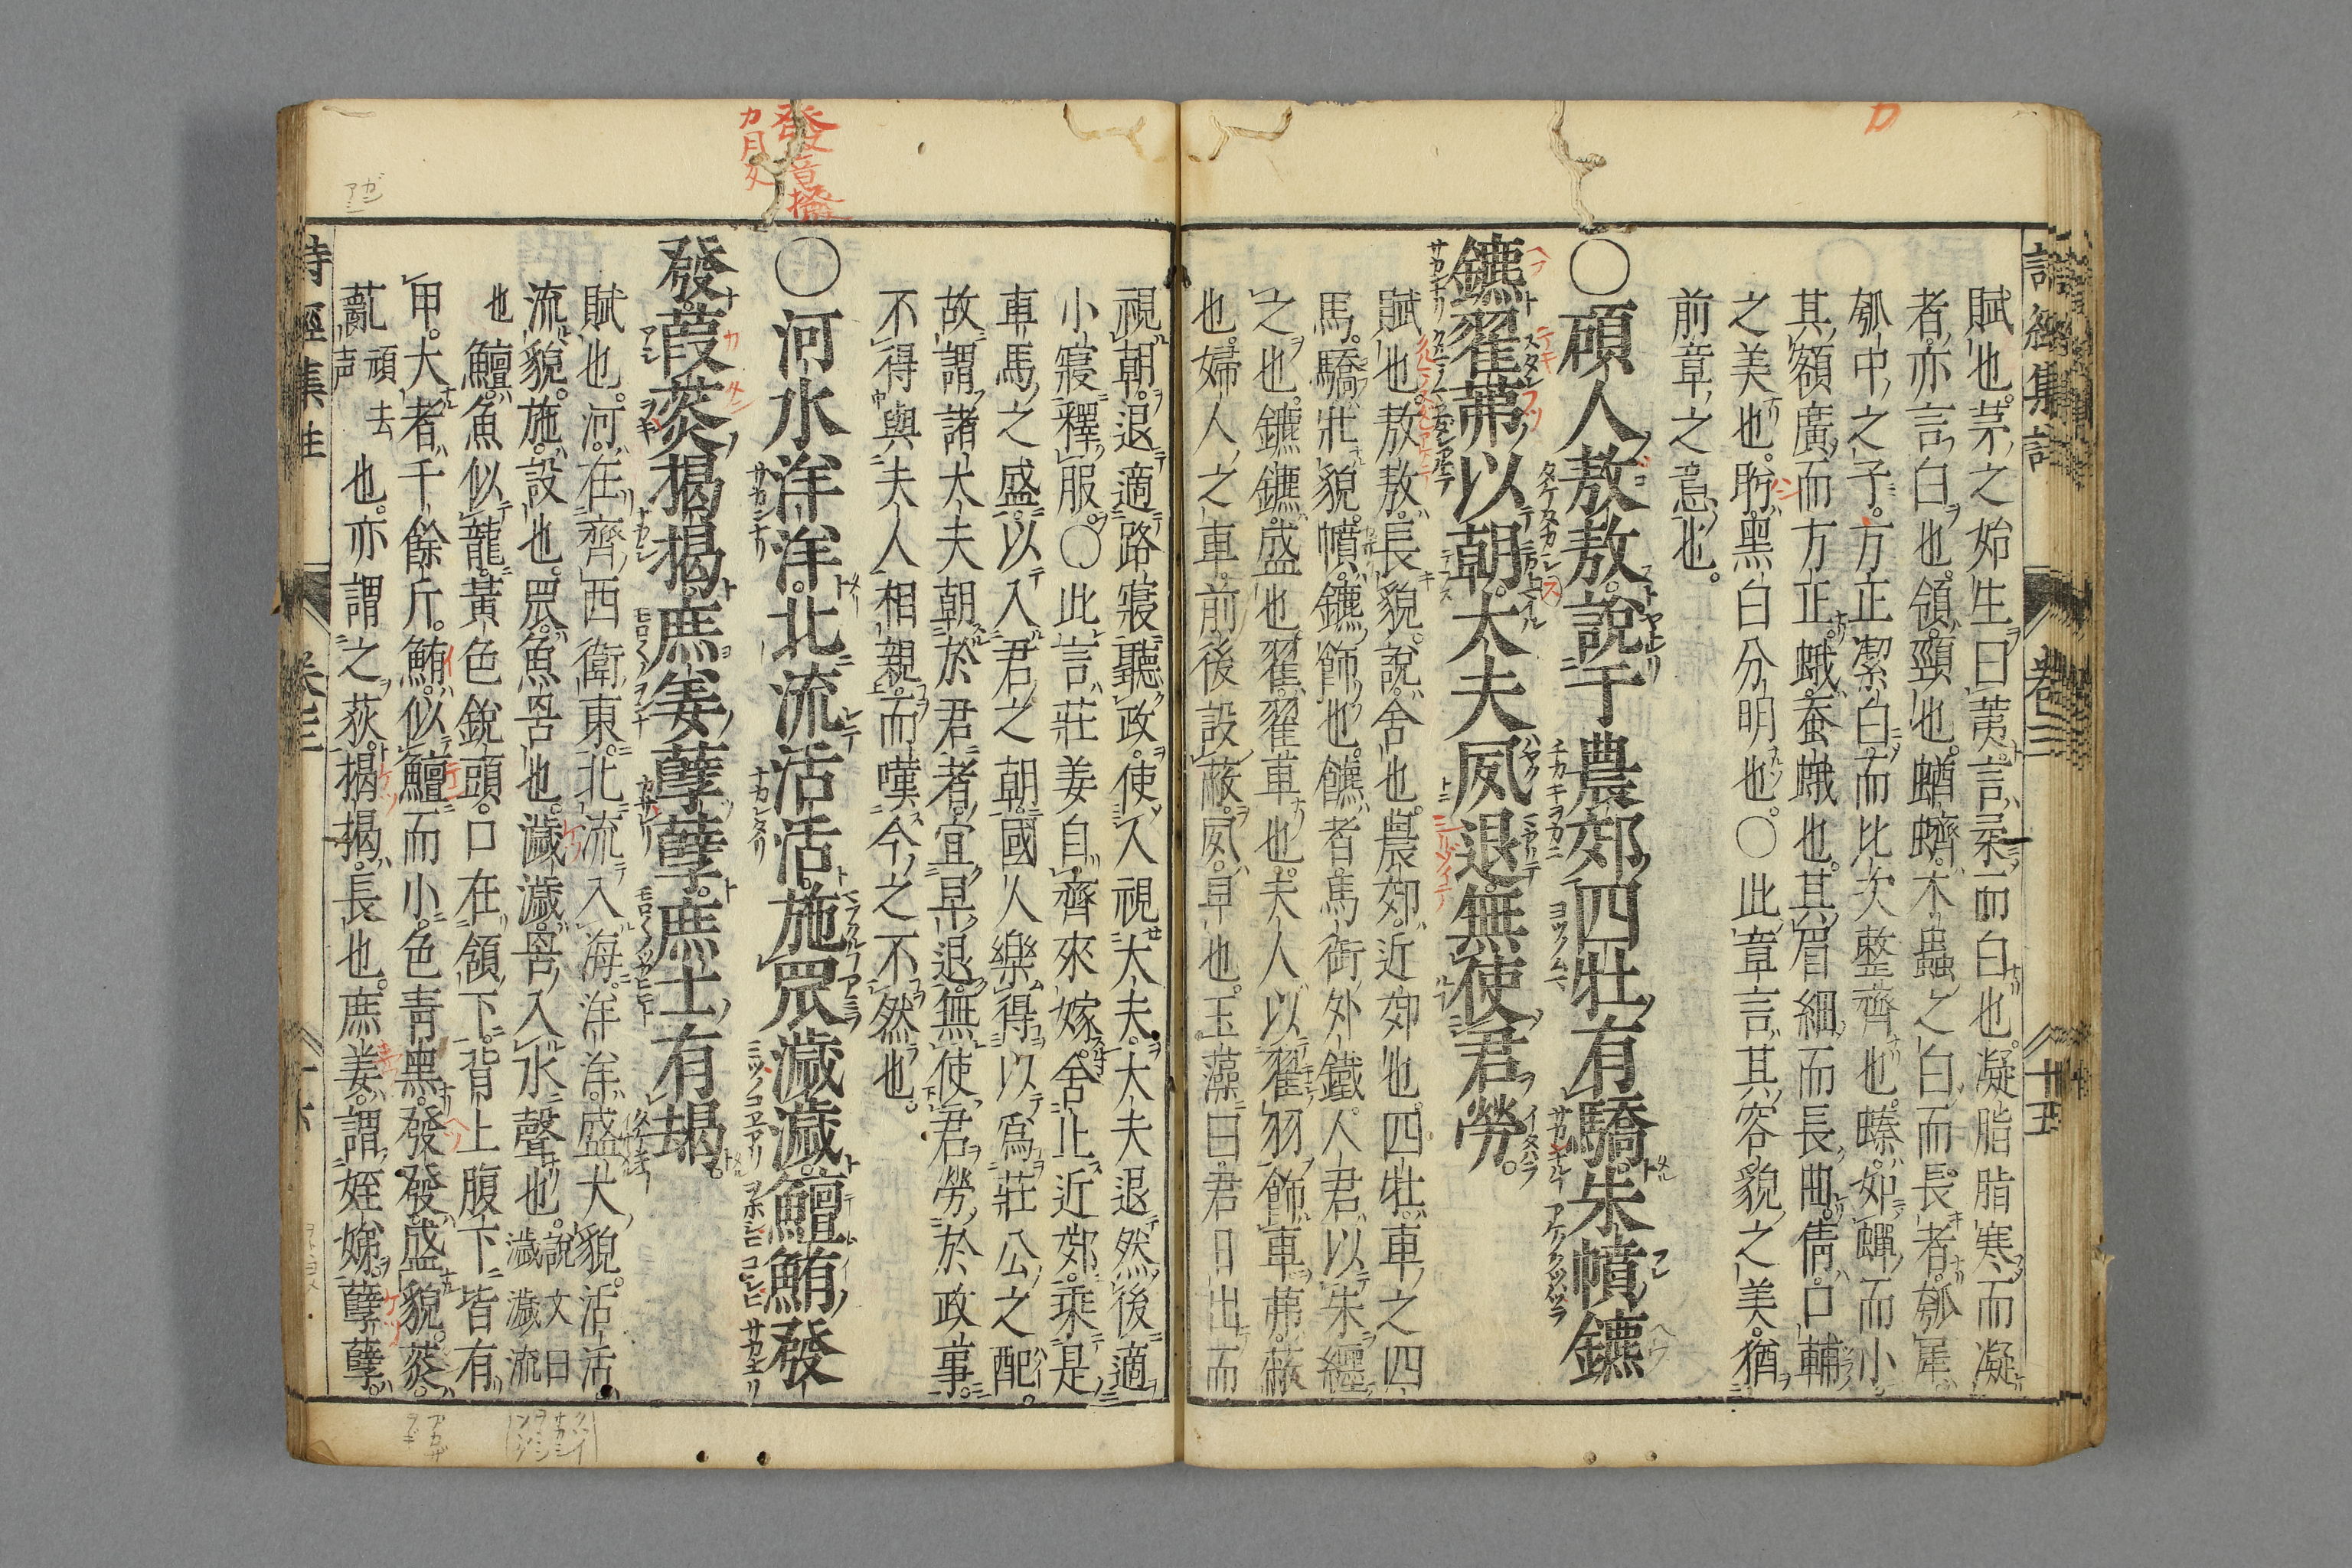 詩經集註 卷三 十五
賦也。茅之始生曰荑。言柔而白也。凝脂脂寒而凝
者。亦言白也。領。頸也。蝤蠐。木蟲之白而長者。瓠犀。
瓠中之子。方正潔白而比次整齊也。螓。如蟬而小。
其額廣而方正。蛾。蚕蛾也。其眉細而長曲。倩。口輔
之美也。盻。黑白分明也。〇此章言其容貌之美。猶
前章之意也。
〇碩人敖敖。說于農郊。四牡有驕。朱幩鑣
鑣。翟茀以朝。大夫夙退。無使君勞。
賦也。敖敖。長貌。說。舍也。農郊。近郊也。四牡。車之四
馬。驕。壯貌。幩。鑣飾也。鑣者。馬銜外鐵。人君以朱纏
之也。鑣鑣。盛也。翟。翟車也。夫人以翟羽飾車。茀。蔽
也。婦人之車。前後設蔽。夙。早也。玉藻曰君日出而
視朝。退適路寢聽政。使人視大夫。大夫退。然後適
小寢釋服。〇此言莊姜自齊來嫁。舍止近郊。乘是
車馬之盛。以入君之朝。國人樂得以爲莊公之配。
故謂諸大夫朝於君者。宜早退。無使君勞於政事。
不得與夫人相親。而嘆今之不然也。
〇河水洋洋。北流活活。施罛濊濊。鱣鮪發
發。葭菼揭揭。庶姜孽孽。庶士有朅。
賦也。河。在齊西衛東。北流入海。洋洋。盛大貌。活活。
流貌。施。設也。罛。魚罟也。濊濊。罟入水聲也。說文曰濊濊流
也
鱣。魚似龍。黃色銳頭。口在頷下。背上腹下皆有
甲。大者千餘斤。鮪。似鱣而小。色青黑。發發。盛貌。菼。
薍頑去声也。亦謂之荻。揭揭。長也。庶姜。謂姪娣。孽孽。
詩經集註 卷三
發音撥